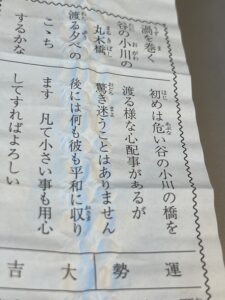 渦を巻く
谷の小川の
丸木橋
渡る夕べの
こゝち
するかな
初めは危い谷の小川の橋を
渡る様な心配事があるが
驚き迷うことはありません
後には何も彼も平和に収り
ます 凡て小さい事も用心
してすればよろしい
運勢大吉